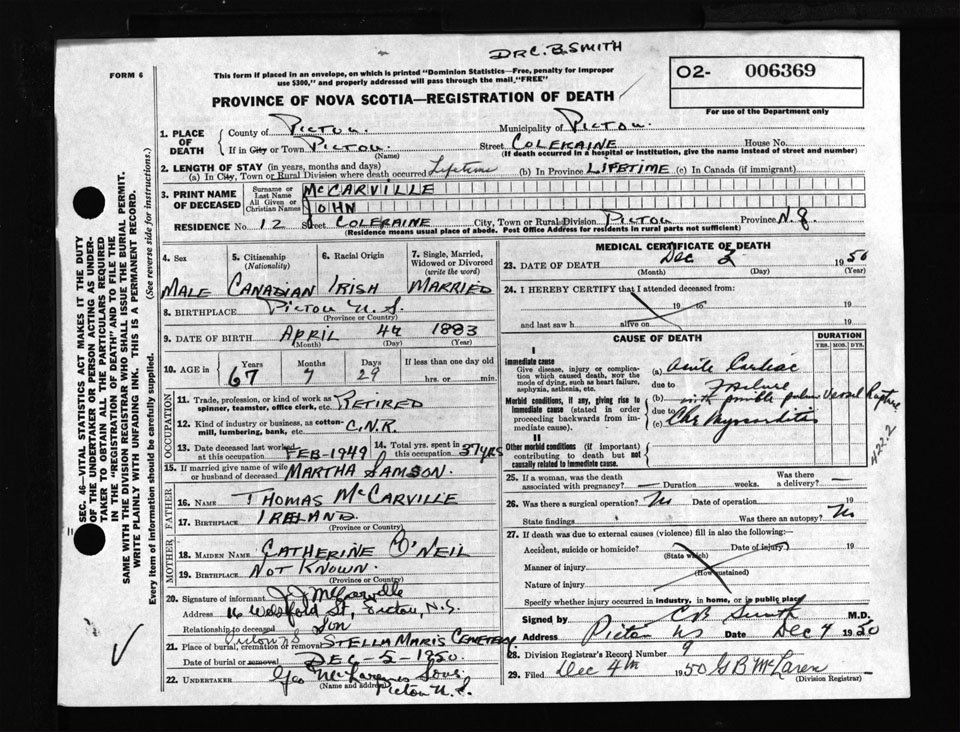 DR C. B. SMITH
FORM 6
This form if placed in an envelope, on which is printed "Dominion Statistics—Free, penalty for improper use $300," and properly addressed will pass through the mail, "FREE"
O2- 006369
For use of the Department only
PROVINCE OF NOVA SCOTIA—REGISTRATION OF DEATH
SEC. 46—VITAL STATISTICS ACT MAKES IT THE DUTY
OF THE UNDERTAKER OR PERSON ACTING AS UNDER-
TAKER TO OBTAIN ALL THE PARTICULARS REQUIRED
IN THE "REGISTRATION OF DEATH" AND TO FILE THE
SAME WITH THE DIVISION REGISTRAR WHO SHALL ISSUE THE BURIAL PERMIT.
WRITE PLAINLY WITH UNFADING INK. THIS IS A PERMANENT RECORD.
Every item of information should be carefully supplied. (See reverse side for instructions.)
1. PLACE OF DEATH County of PICTOU. Municipality of PICTOU.
If in City or Town PICTOU. (Name) Street COLERAINE House No.
(If death occurred in a hospital or institution, give the name instead of street and number)
2. LENGTH OF STAY (in years, months and days)
(a) In City, Town or Rural Division where death occurred Lifetime (b) In Province LIFETIME (c) In Canada (if immigrant)
3. PRINT NAME OF DECEASED Surname or Last Name McCARVILLE
All Given or Christian Names JOHN
RESIDENCE No. 12 Street COLERAINE City, Town or Rural Division PICTOU Province N.S.
(Residence means usual place of abode. Post Office Address for residents in rural parts not sufficient)
4. Sex MALE
5. Citizenship (Nationality) CANADIAN
6. Racial Origin IRISH
7. Single, Married, Widowed or Divorced (write the word) MARRIED
8. BIRTHPLACE PICTOU N.S. (Province or Country)
9. DATE OF BIRTH APRIL (Month) 4th (Day) 1883 (Year)
10. AGE in Years 67 Months 7 Days 29 If less than one day old hrs. or min.
OCCUPATION
11. Trade, profession, or kind of work as spinner, teamster, office clerk, etc. RETIRED
12. Kind of industry or business, as cotton-mill, lumbering, bank, etc. C.N.R.
13. Date deceased last worked at this occupation FEB-1949
14. Total yrs. spent in this occupation 37 yrs
15. If married give name of wife or husband of deceased MARTHA SAMSON.
FATHER
16. Name THOMAS McCARVILLE
17. Birthplace IRELAND (Province or Country)
MOTHER
18. Maiden Name CATHERINE O'NEIL
19. Birthplace NOT KNOWN. (Province or Country)
20. Signature of informant J. J. McCarville
Address St, Pictou, N.S.
Relationship to deceased Son
21. Place of burial, cremation or removal Pictou NS STELLA MARIS CEMETERY
Date of burial or removal DEC-5-1950.
22. UNDERTAKER Geo McLaren & Sons (Name and address) Pictou N.S.
MEDICAL CERTIFICATE OF DEATH
23. DATE OF DEATH Dec (Month) 3 (Day) 1950 (Year)
24. I HEREBY CERTIFY that I attended deceased from:
19 to 19
and last saw h alive on 19
CAUSE OF DEATH
DURATION
YRS. MOS. DYS.
I
Immediate cause
Give disease, injury or complication which caused death, not the mode of dying, such as heart failure, asphyxia, asthenia, etc.
(a) Acute Cardiac
due to Failure
Morbid conditions, if any, giving rise to immediate cause (stated in order proceeding backwards from immediate cause).
(b) with possible Vessel Rupture
due to
(c) Chr Myocarditis
II
Other morbid conditions (if important) contributing to death but not causally related to immediate cause.
422.2
25. If a woman, was the death associated with pregnancy? — Duration weeks. Was there a delivery? —
26. Was there a surgical operation? No Date of operation 19
State findings Was there an autopsy? No
27. If death was due to external causes (violence) fill in also the following:—
Accident, suicide or homicide? (State which) Date of injury 19
Manner of injury (How sustained)
Nature of injury
Specify whether injury occurred in industry, in home, or in public place
Signed by C B Smith M.D.
Address Pictou NS Date Dec 4 1950
28. Division Registrar's Record Number 9
29. Filed Dec 4th 1950 G B McLaren (Division Registrar)